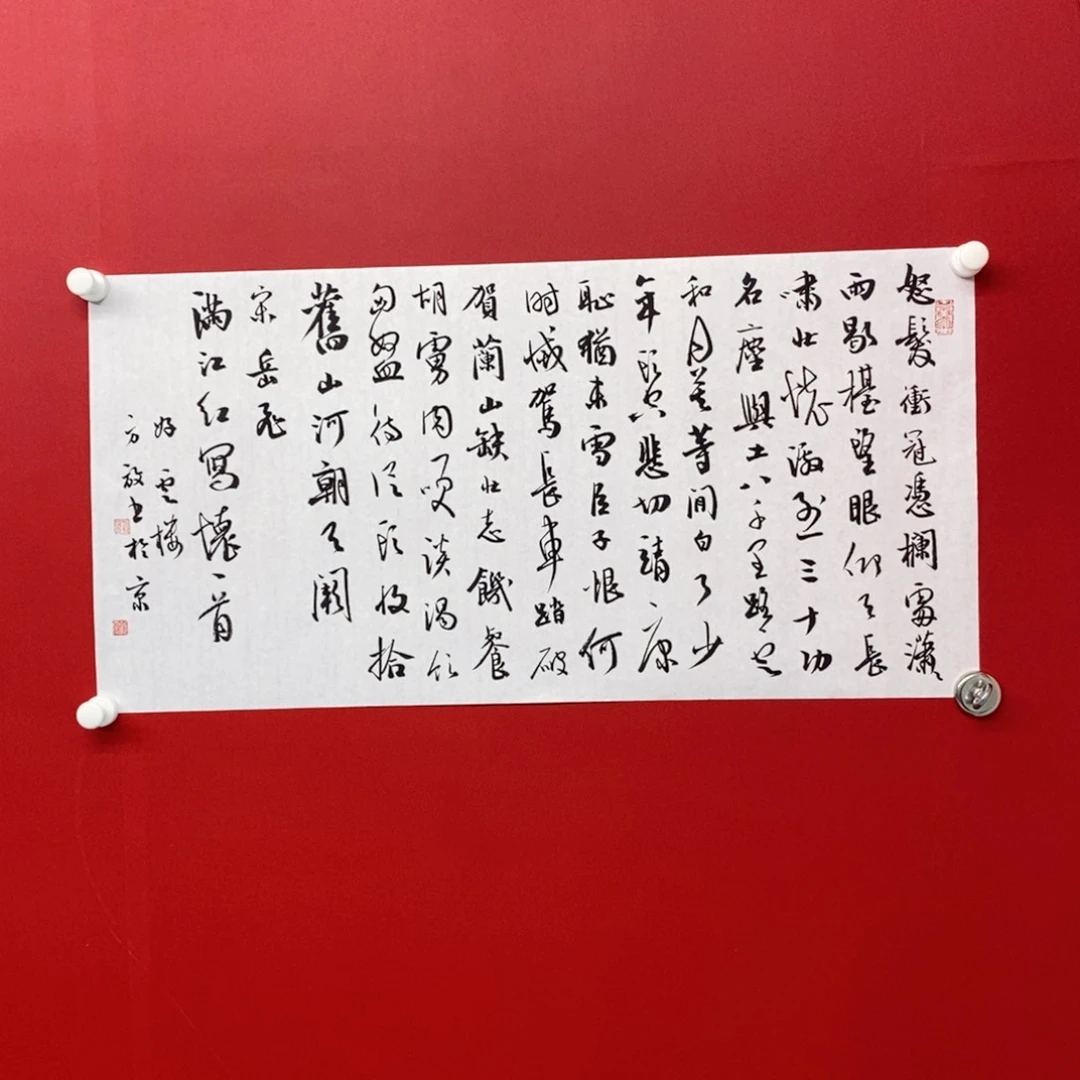 怒髮衝冠憑欄處瀟々
雨歇擡望眼仰天長
嘯壯懷激烈三十功
名塵與土八千里路雲
和月莫等間白了少
年頭空悲切靖康
恥猶未雪臣子恨何
時滅駕長車踏破
賀蘭山缺壯志饑餐
胡虜肉笑談渴飲
匈奴血待從頭收拾
舊山河朝天闕
宋岳飛
滿江紅寫懷一首
好雲樓
方放書於京